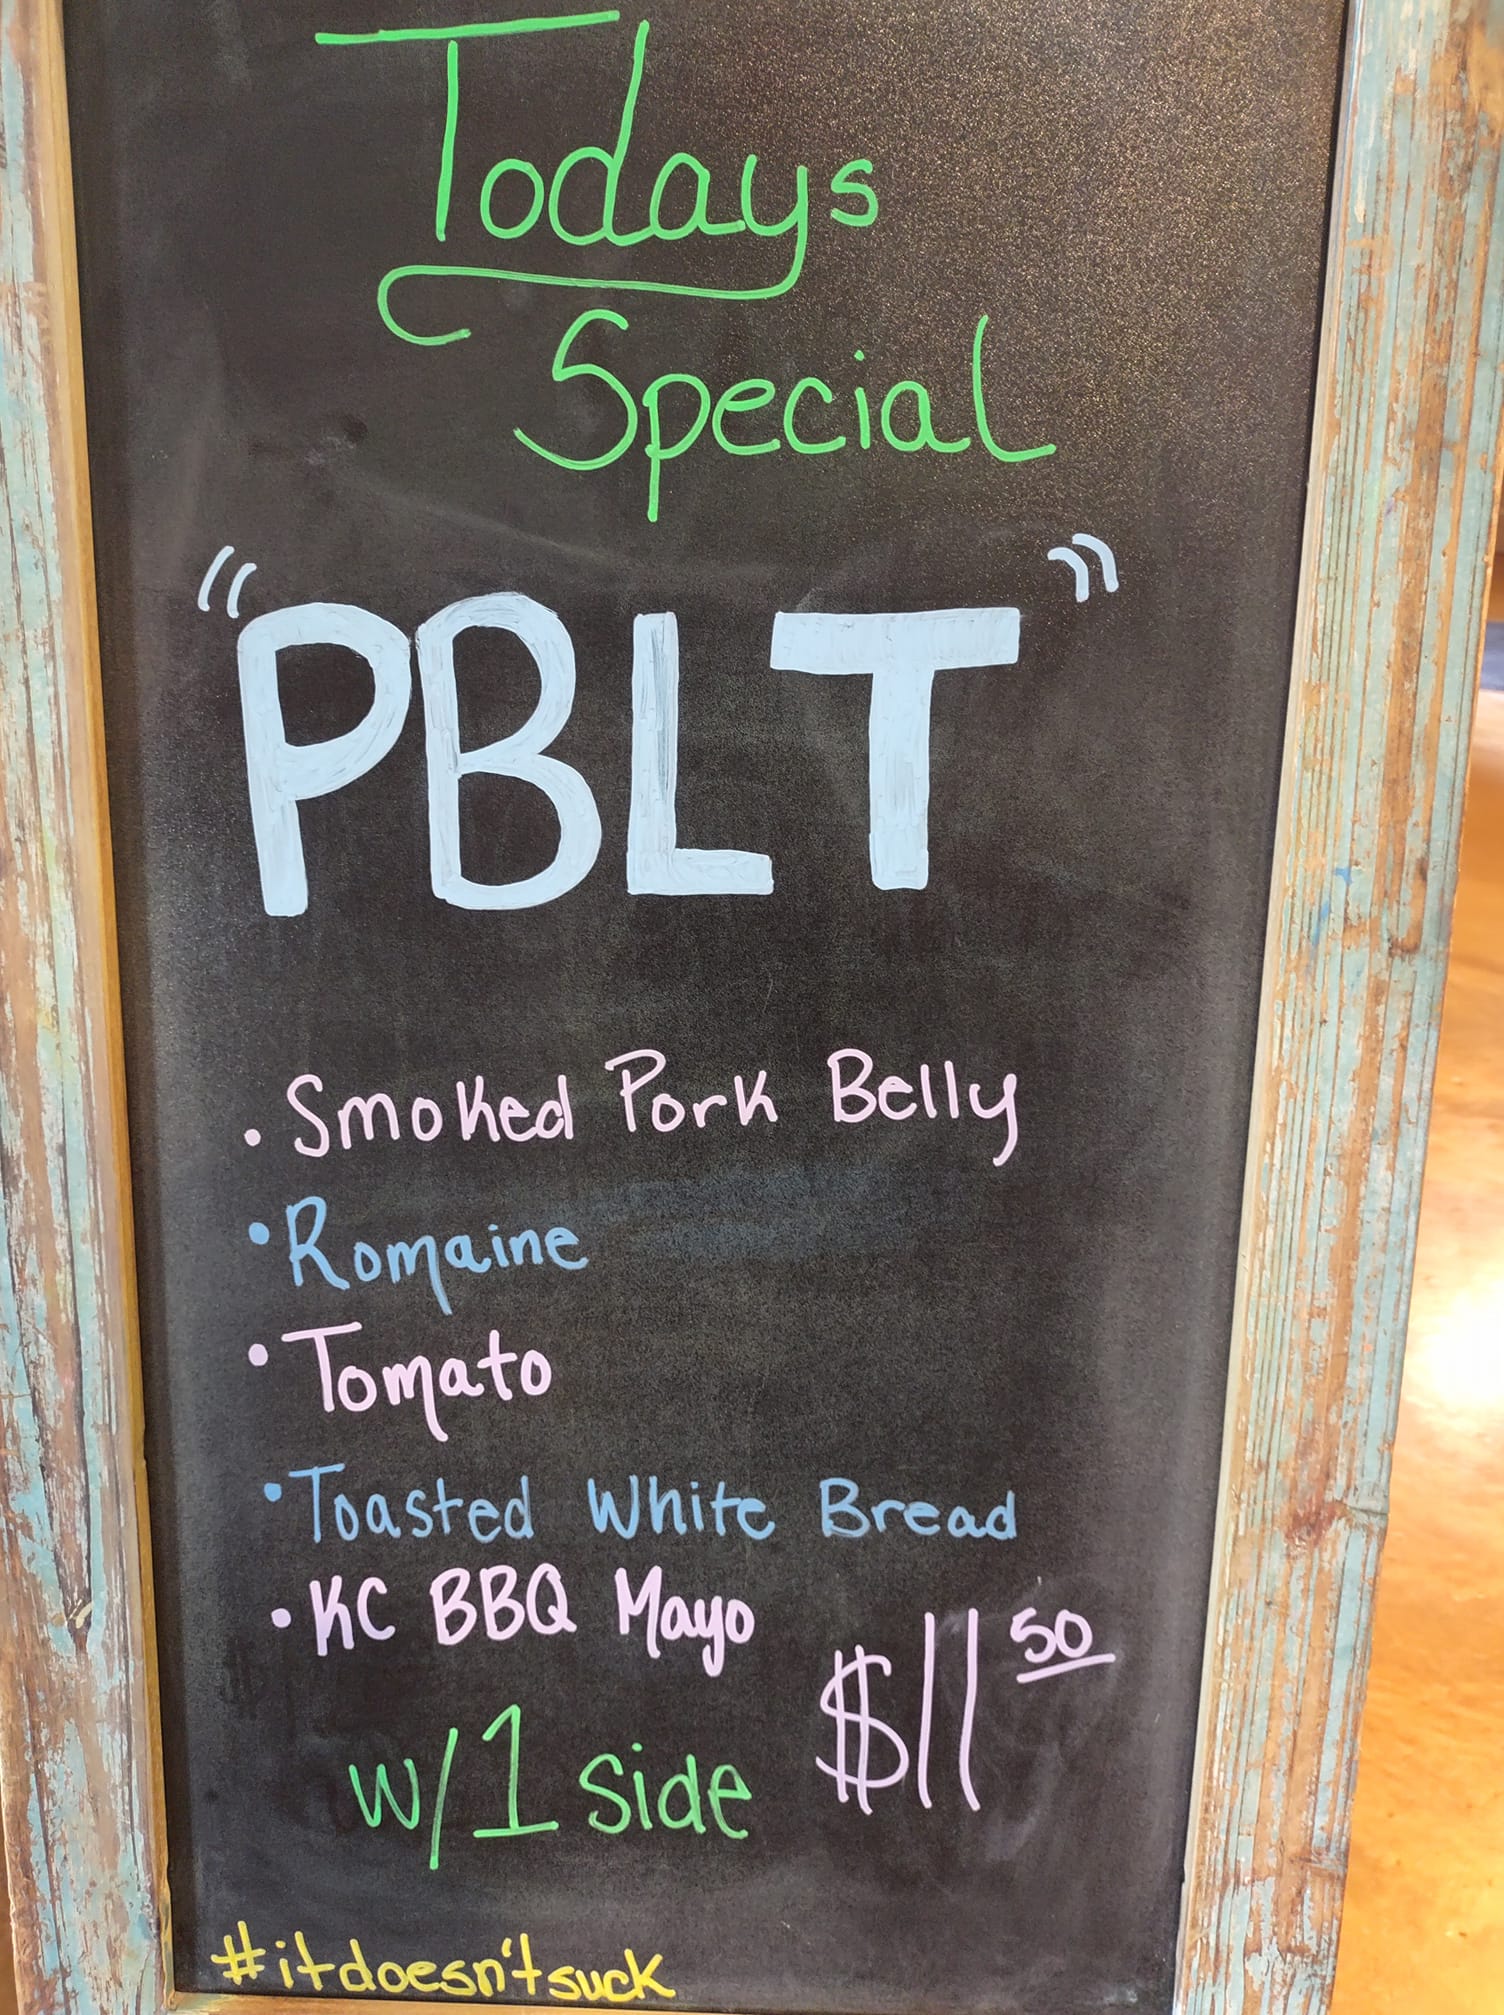 Todays
Special
"PBLT"
• Smoked Pork Belly
• Romaine
• Tomato
• Toasted White Bread
• KC BBQ Mayo
$11 50
w/1 side
#itdoesn'tsuck